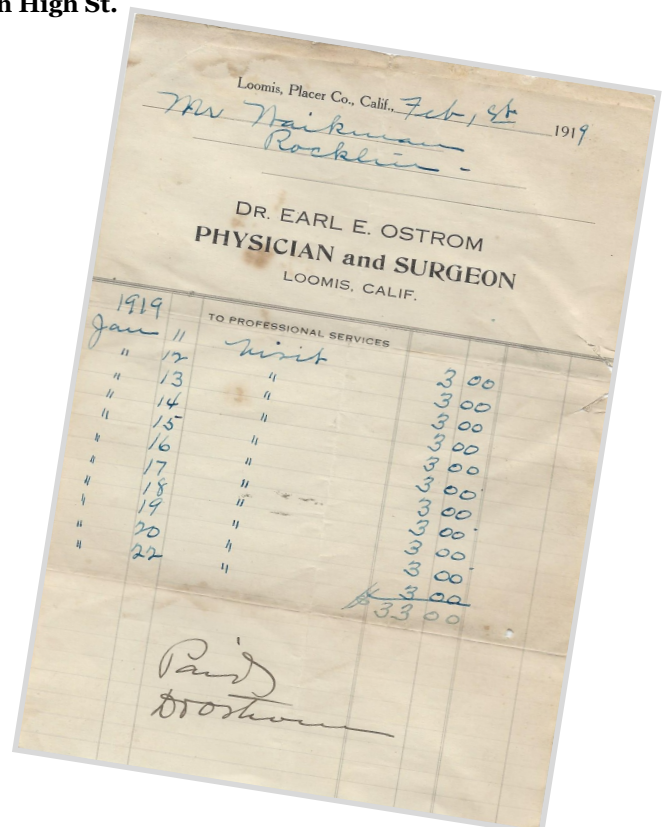 n High St.
Loomis, Placer Co., Calif., Feb, 1919
Mr
Rocklin -
DR. EARL E. OSTROM
PHYSICIAN and SURGEON
LOOMIS, CALIF.
1919
TO PROFESSIONAL SERVICES
Jan 11 Visit 3 00
" 12 " 3 00
" 13 " 3 00
" 14 " 3 00
" 15 " 3 00
" 16 " 3 00
" 17 " 3 00
" 18 " 3 00
" 19 " 3 00
" 20 " 3 00
" 22 " 3 00
$ 33 00
Paid
Dr Ostrom